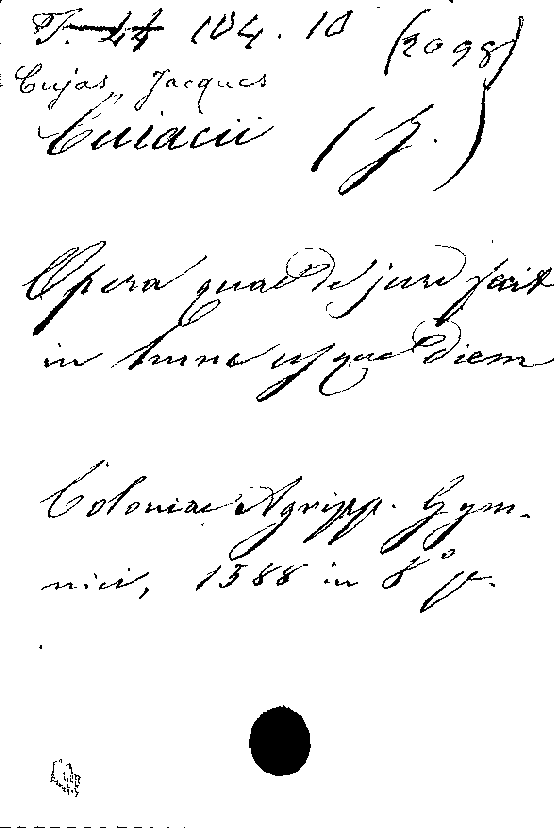 T. 44 104. 10 (2098)
Cujas, Jacques
Cuiacii (J.)
Opera quae de jure fecit
in hunc usque diem
Coloniae Agripp. Gym-
nici, 1588 in 8° p.